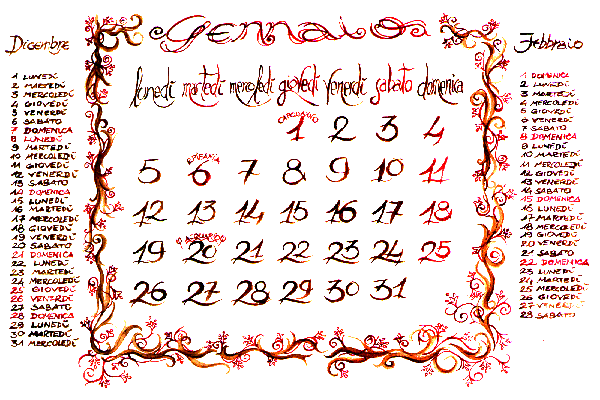 Dicembre
1 LUNEDÌ
2 MARTEDÌ
3 MERCOLEDÌ
4 GIOVEDÌ
5 VENERDÌ
6 SABATO
7 DOMENICA
8 LUNEDÌ
9 MARTEDÌ
10 MERCOLEDÌ
11 GIOVEDÌ
12 VENERDÌ
13 SABATO
14 DOMENICA
15 LUNEDÌ
16 MARTEDÌ
17 MERCOLEDÌ
18 GIOVEDÌ
19 VENERDÌ
20 SABATO
21 DOMENICA
22 LUNEDÌ
23 MARTEDÌ
24 MERCOLEDÌ
25 GIOVEDÌ
26 VENERDÌ
27 SABATO
28 DOMENICA
29 LUNEDÌ
30 MARTEDÌ
31 MERCOLEDÌ
Gennaio
lunedì martedì mercoledì giovedì venerdì sabato domenica
CAPODANNO
1 2 3 4
EPIFANIA
5 6 7 8 9 10 11
12 13 14 15 16 17 18
19 20 21 22 23 24 25
26 27 28 29 30 31
Febbraio
1 DOMENICA
2 LUNEDÌ
3 MARTEDÌ
4 MERCOLEDÌ
5 GIOVEDÌ
6 VENERDÌ
7 SABATO
8 DOMENICA
9 LUNEDÌ
10 MARTEDÌ
11 MERCOLEDÌ
12 GIOVEDÌ
13 VENERDÌ
14 SABATO
15 DOMENICA
16 LUNEDÌ
17 MARTEDÌ
18 MERCOLEDÌ
19 GIOVEDÌ
20 VENERDÌ
21 SABATO
22 DOMENICA
23 LUNEDÌ
24 MARTEDÌ
25 MERCOLEDÌ
26 GIOVEDÌ
27 VENERDÌ
28 SABATO